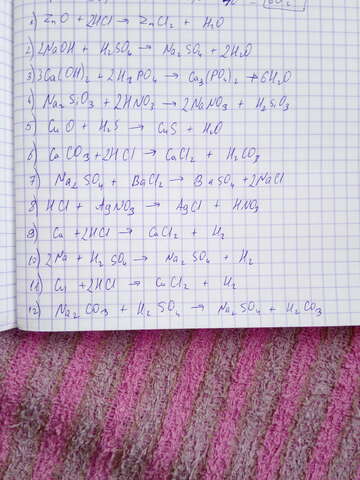 1) ZnO + 2HCl → ZnCl₂ + H₂O
2) 2NaOH + H₂SO₄ → Na₂SO₄ + 2H₂O
3) 3Ca(OH)₂ + 2H₃PO₄ → Ca₃(PO₄)₂ + 6H₂O
4) Na₂SiO₃ + 2HNO₃ → 2NaNO₃ + H₂SiO₃
5) CuO + H₂S → CuS + H₂O
6) CaCO₃ + 2HCl → CaCl₂ + H₂CO₃
7) Na₂SO₄ + BaCl₂ → BaSO₄ + 2NaCl
8) HCl + AgNO₃ → AgCl + HNO₃
9) Ca + 2HCl → CaCl₂ + H₂
10) 2Na + H₂SO₄ → Na₂SO₄ + H₂
11) Cu + 2HCl → CuCl₂ + H₂
12) Na₂CO₃ + H₂SO₄ → Na₂SO₄ + H₂CO₃